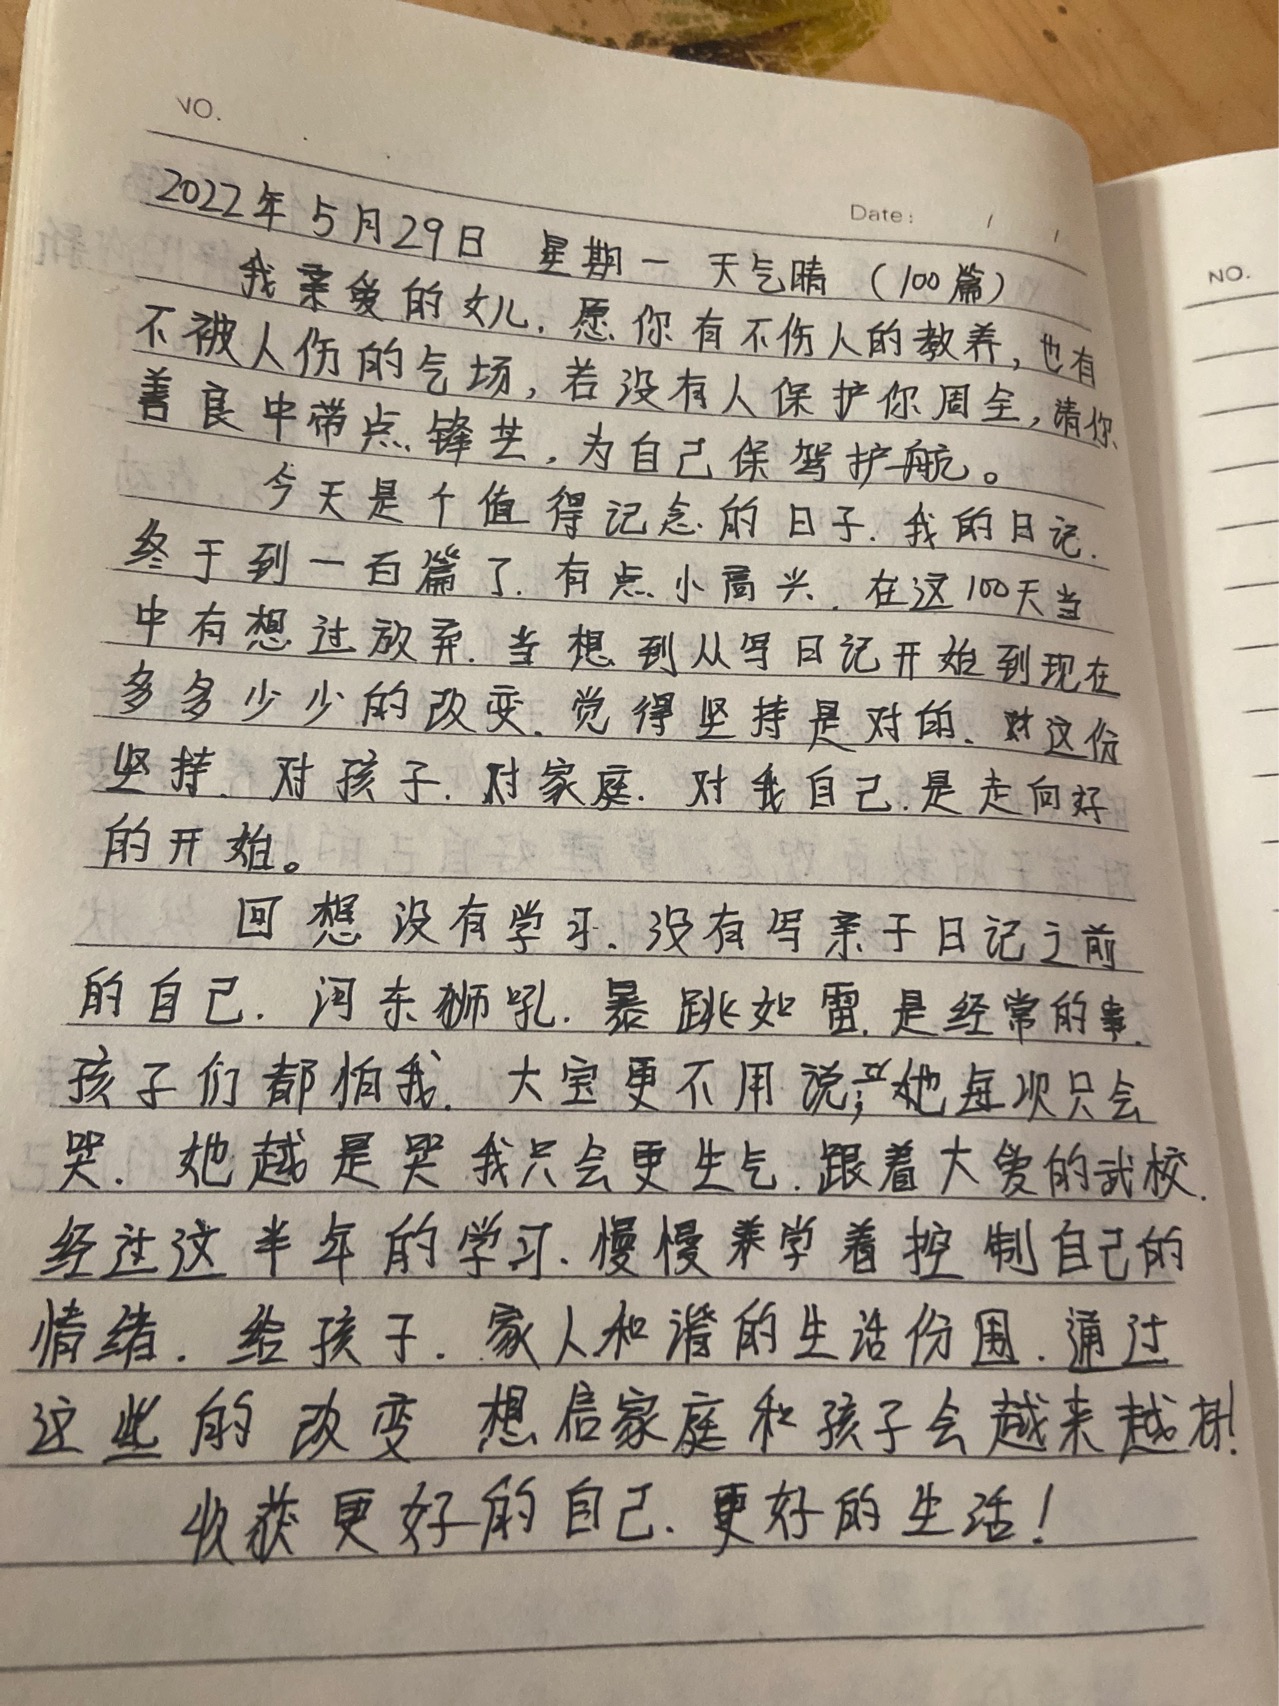 NO.
Date: / /
2022年5月29日 星期一 天气晴 （100篇）
我亲爱的女儿.愿你有不伤人的教养，也有
不被人伤的气场，若没有人保护你周全，请你
善良中带点锋芒，为自己保驾护航。
今天是个值得记念的日子.我的日记.
终于到一百篇了.有点小高兴.在这100天当
中有想过放弃.当想到从写日记开始到现在
多多少少的改变.觉得坚持是对的.对这份
坚持.对孩子.对家庭.对我自己.是走向好
的开始。
回想没有学习.没有写亲子日记之前
的自己.河东狮吼.暴跳如雷.是经常的事.
孩子们都怕我.大宝更不用说；她每次只会
哭.她越是哭我只会更生气.跟着大爱的武校.
经过这半年的学习.慢慢学着控制自己的
情绪.给孩子.家人和谐的生活份围.通过
这些的改变 想信家庭和孩子会越来越棒!
收获更好的自己.更好的生活！
NO.